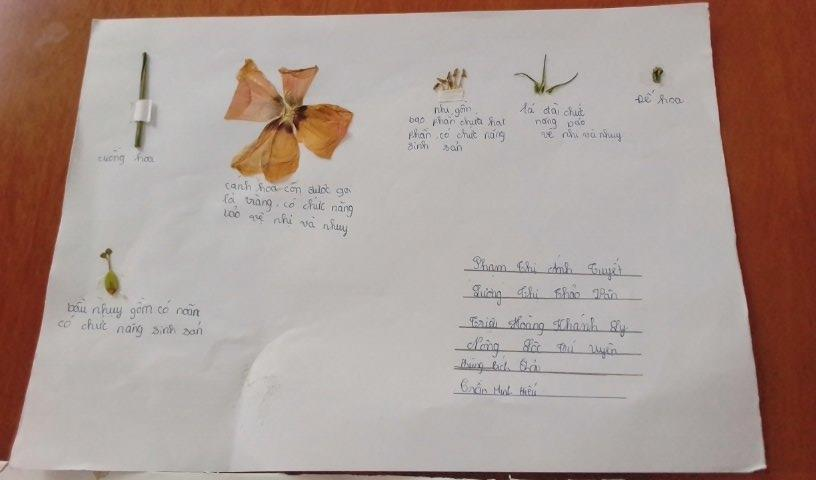 cuống hoa
cánh hoa còn được gọi
là tràng. có chức năng
bảo vệ nhị và nhụy
nhị gồm
bao phấn chứa hạt
phấn. có chức năng
sinh sản
lá đài chức
năng bảo
vệ nhị và nhụy
Đế hoa
bầu nhụy gồm có noãn
có chức năng sinh sản
Phạm Thị Ánh Tuyết
Thị Thảo Vân
Triệu Hoàng Khánh Ly
Nông Tú Uyên
Trần Minh Hiếu